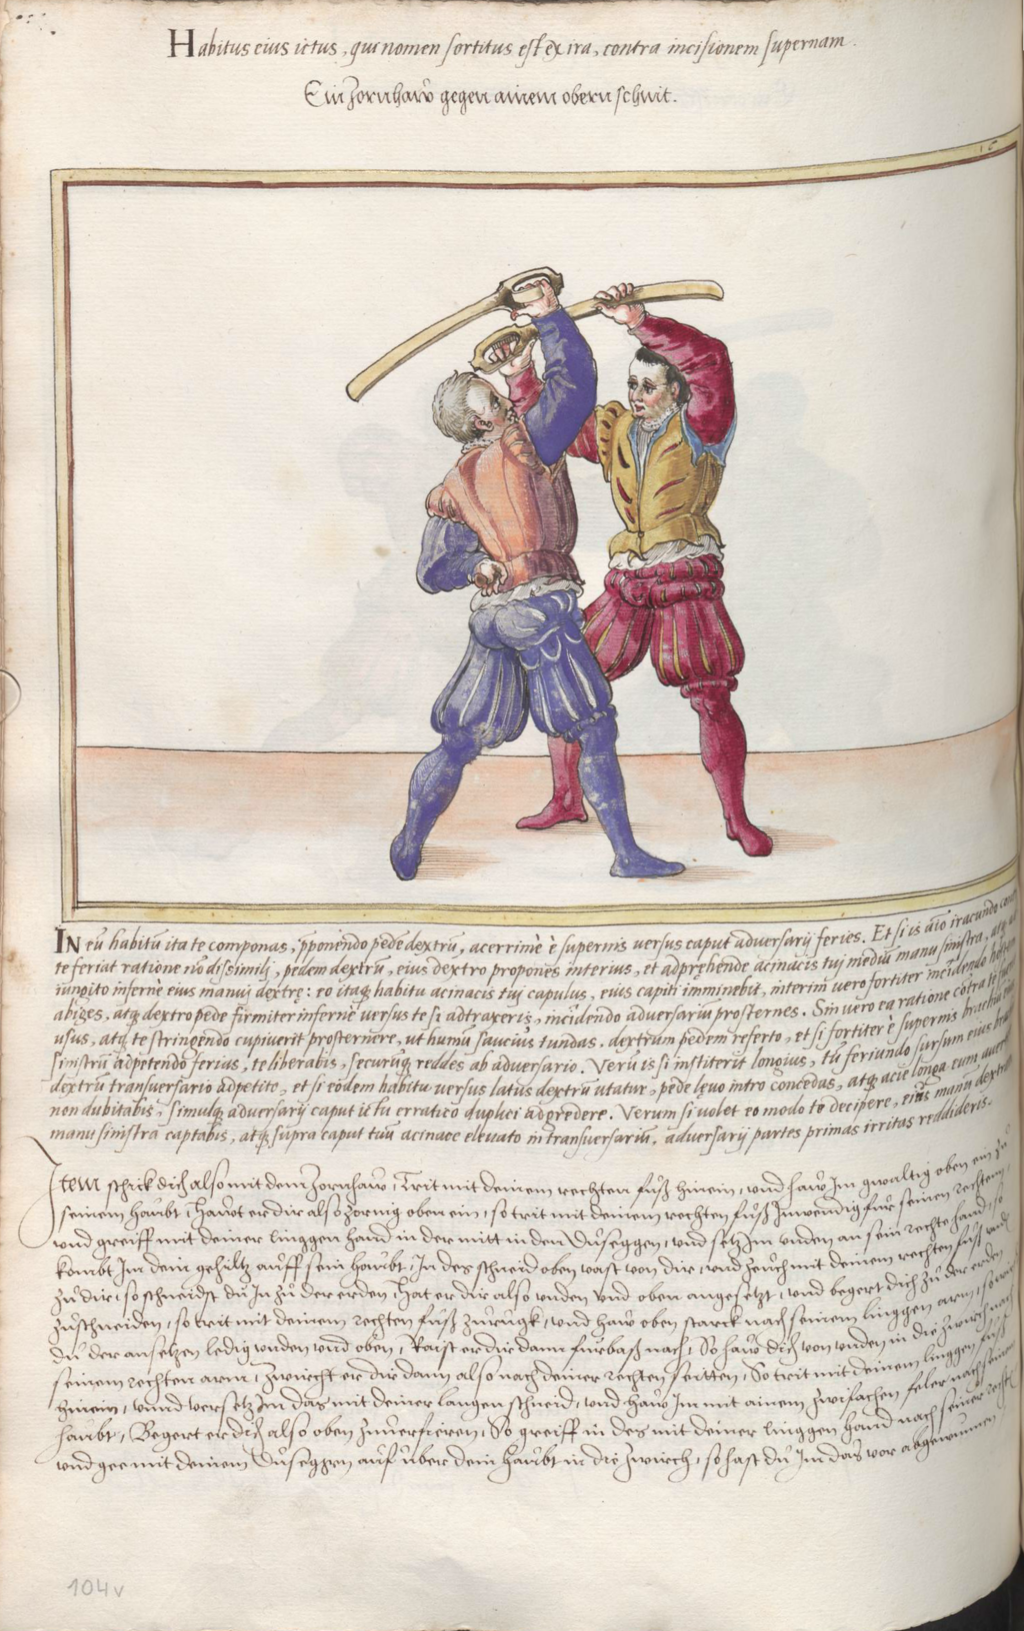 Habitus eius ictus, qui nomen sortitus est ex ira, contra incisionem supernam.
Ein Zornhaw gegen ainem obern schnit.
16
IN eũ habitũ ita te componas, ꝓponendo pedẽ dextrũ, acerrimè è supernis versus caput aduersarij feries. Et si is aĩo iracundo
te feriat ratione nõ dissimili, pedem dextrũ, eius dextro propones interius, et adprehende acinacis tuj mediũ manu sinistra, atq
iungito infernè eius manuj dextrę: eo itaq habitu acinacis tuj capulus, eius capiti imminebit, interim vero fortiter incidendo hostem
abiges, atq dextro pede firmiter infernè versus te si adtraxeris, incidendo aduersariũ prosternes. Sin vero ea ratione cõtra te
usus, atq te stringendo cupiuerit prosternere, ut humũ saucius tundas, dextrum pedem referto, et si fortiter è supernis brachiũ
sinistrũ adpetendo ferias, te liberabis, securũq reddes ab aduersario. Verũ is si institerit longius, tũ feriundo sursum eius
dextrũ transuersario adpetito, et si eodem habitu versus latus dextrũ utatur, pede lęuo intro concedas, atq acie longa eum
non dubitabis, simulq aduersarij caput ictu erratico duplici adgredere. Verum si volet eo modo te decipere, eius manũ dextrã
manu sinistra captabis, atq supra caput tuũ acinace eleuato in transuersariũ, aduersarij partes primas irritas reddideris.
Item schick dich also mit dem Zornhaw, Trit mit deinem rechten fuß hinein, vnd haw Im gwaltig oben ein zu
seinem haubt, Hawt er dir also zornig oben ein, so trit mit deinem rechten fuß Inwendig fur seinen rechten,
vnd greiff mit deiner linggen hand in der mitt in den Duseggen, vnd setz Im vnden an sein rechte hand, so
kombt Im dein gehiltz auff sein haubt, In des schneid oben vast von dir, vnd zeuch mit deinem rechten fuß vnden
zu dir, so schneidst du In zu der erden, Hat er dir also vnden vnd oben angesetzt, vnd begert dich zu der erden
zuschneiden, so trit mit deinem rechten fuß zurugk, vnd haw oben starck nach seinem linggen arm, so wirst
du der ansetzen ledig vnden vnd oben, Raist er dir dann furbaß nach, So haw dich von vnden in die zwirch nach
seinem rechten arm, Zwircht er dir dann also nach deiner rechten seitten, So trit mit deinem linggen fuß
hinein, vnnd versetz Im das mit deiner langen schneid, vnd haw Im mit ainem zwifachen feler nach seinem
haubt, Begert er dich also oben zuuerfieren, So greiff in des mit deiner linggen hand nach seiner rechten
vnd gee mit deinem Duseggen auf vber dein haubt in die zwirch, so hast du Im das vor abgewunnen
104v